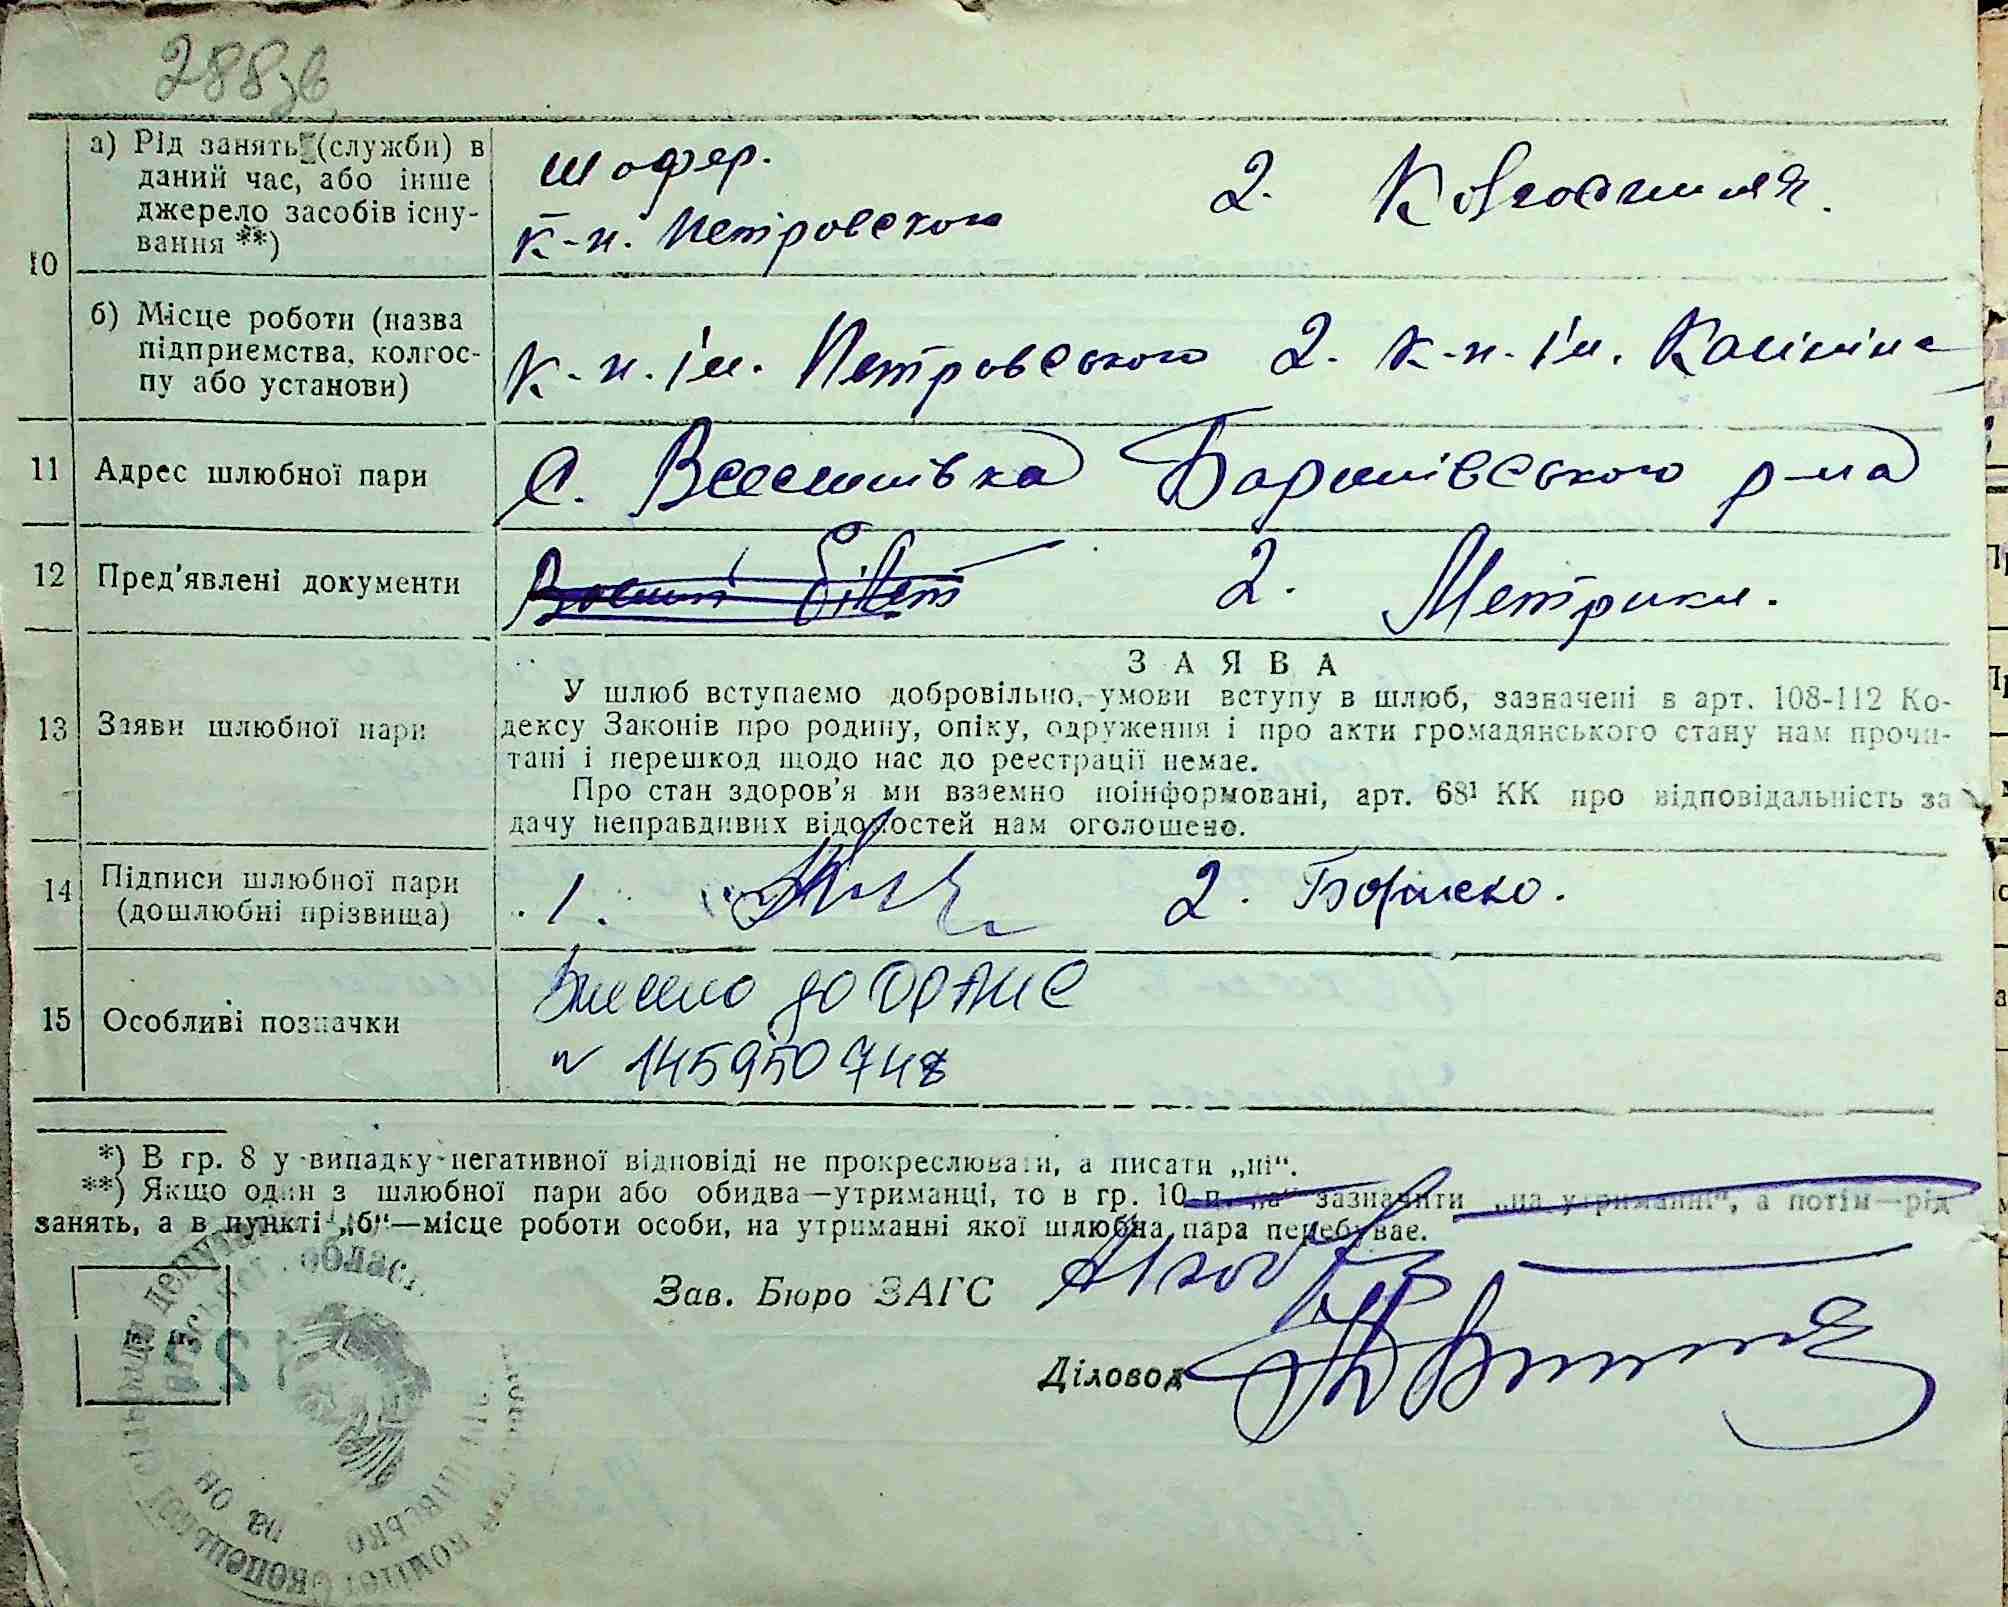 288зв
10
а) Рід занять (служби) в
даний час, або інше
джерело засобів існу-
вання **)
шофер.
к-п. Петровского
2. Колгоспниця.
б) Місце роботи (назва
підприємства, колгос-
пу або установи)
к-п. ім. Петровського 2. к-п. ім. Калініна
11 Адрес шлюбної пари
с. Веселівка Баранівського р-на
12 Пред'явлені документи
Воєнний білет 2. Метрики.
13 Заяви шлюбної пари
ЗАЯВА
У шлюб вступаємо добровільно, умови вступу в шлюб, зазначені в арт. 108-112 Ко-
дексу Законів про родину, опіку, одруження і про акти громадянського стану нам прочи-
тані і перешкод щодо нас до реєстрації немає.
Про стан здоров'я ми взаємно поінформовані, арт. 68¹ КК про відповідальність за
дачу неправдивих відомостей нам оголошено.
14 Підписи шлюбної пари
(дошлюбні прізвища)
1. 2.
15 Особливі позначки
Внесено до ОРАЦС
№ 145950748
*) В гр. 8 у випадку негативної відповіді не прокреслювати, а писати „ні“.
**) Якщо один з шлюбної пари або обидва—утриманці, то в гр. 10 п. „а“ зазначити „на утриманні“, а потім—рід
занять, а в пункті „б“—місце роботи особи, на утриманні якої шлюбна пара перебуває.
Зав. Бюро ЗАГС
Діловод